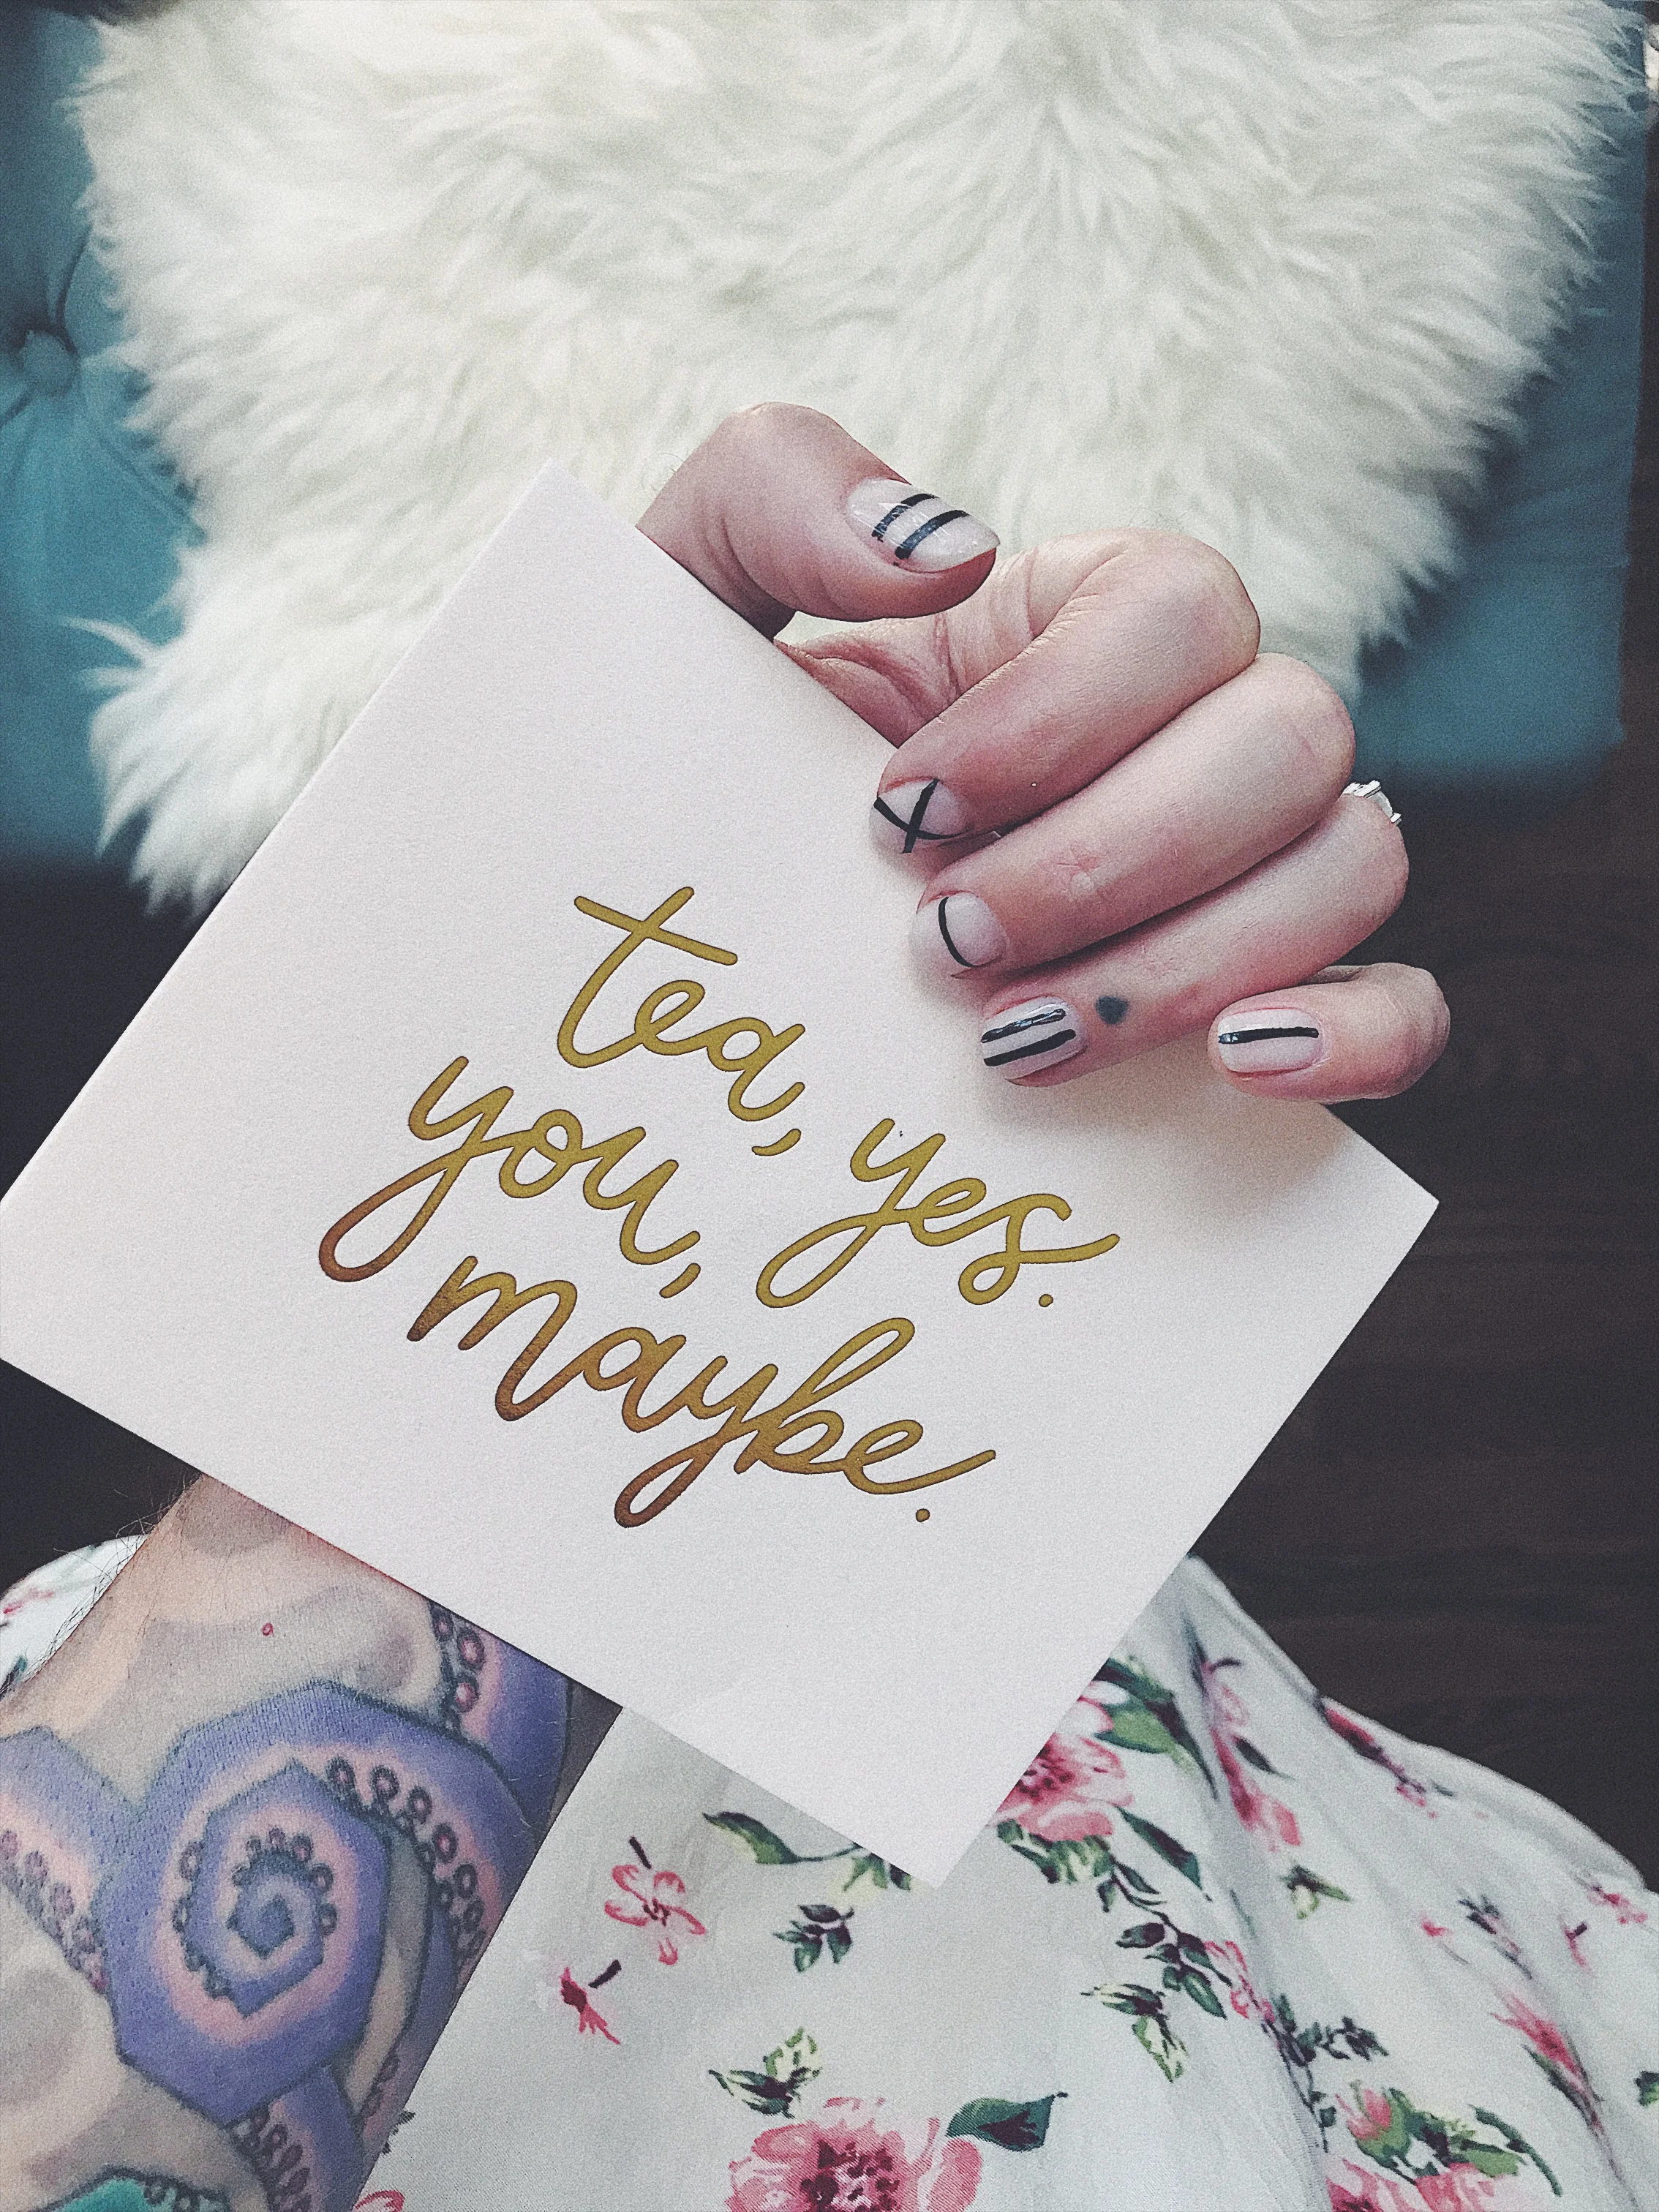 tea, yes.
you,
maybe.